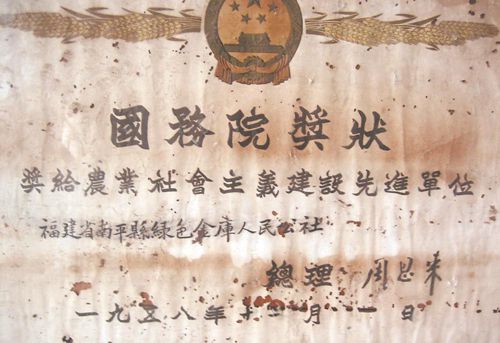 國務院獎狀
獎給農業社會主義建設先進單位
福建省南平縣綠色金庫人民公社
總理 周恩来
一九五八年十二月 一日